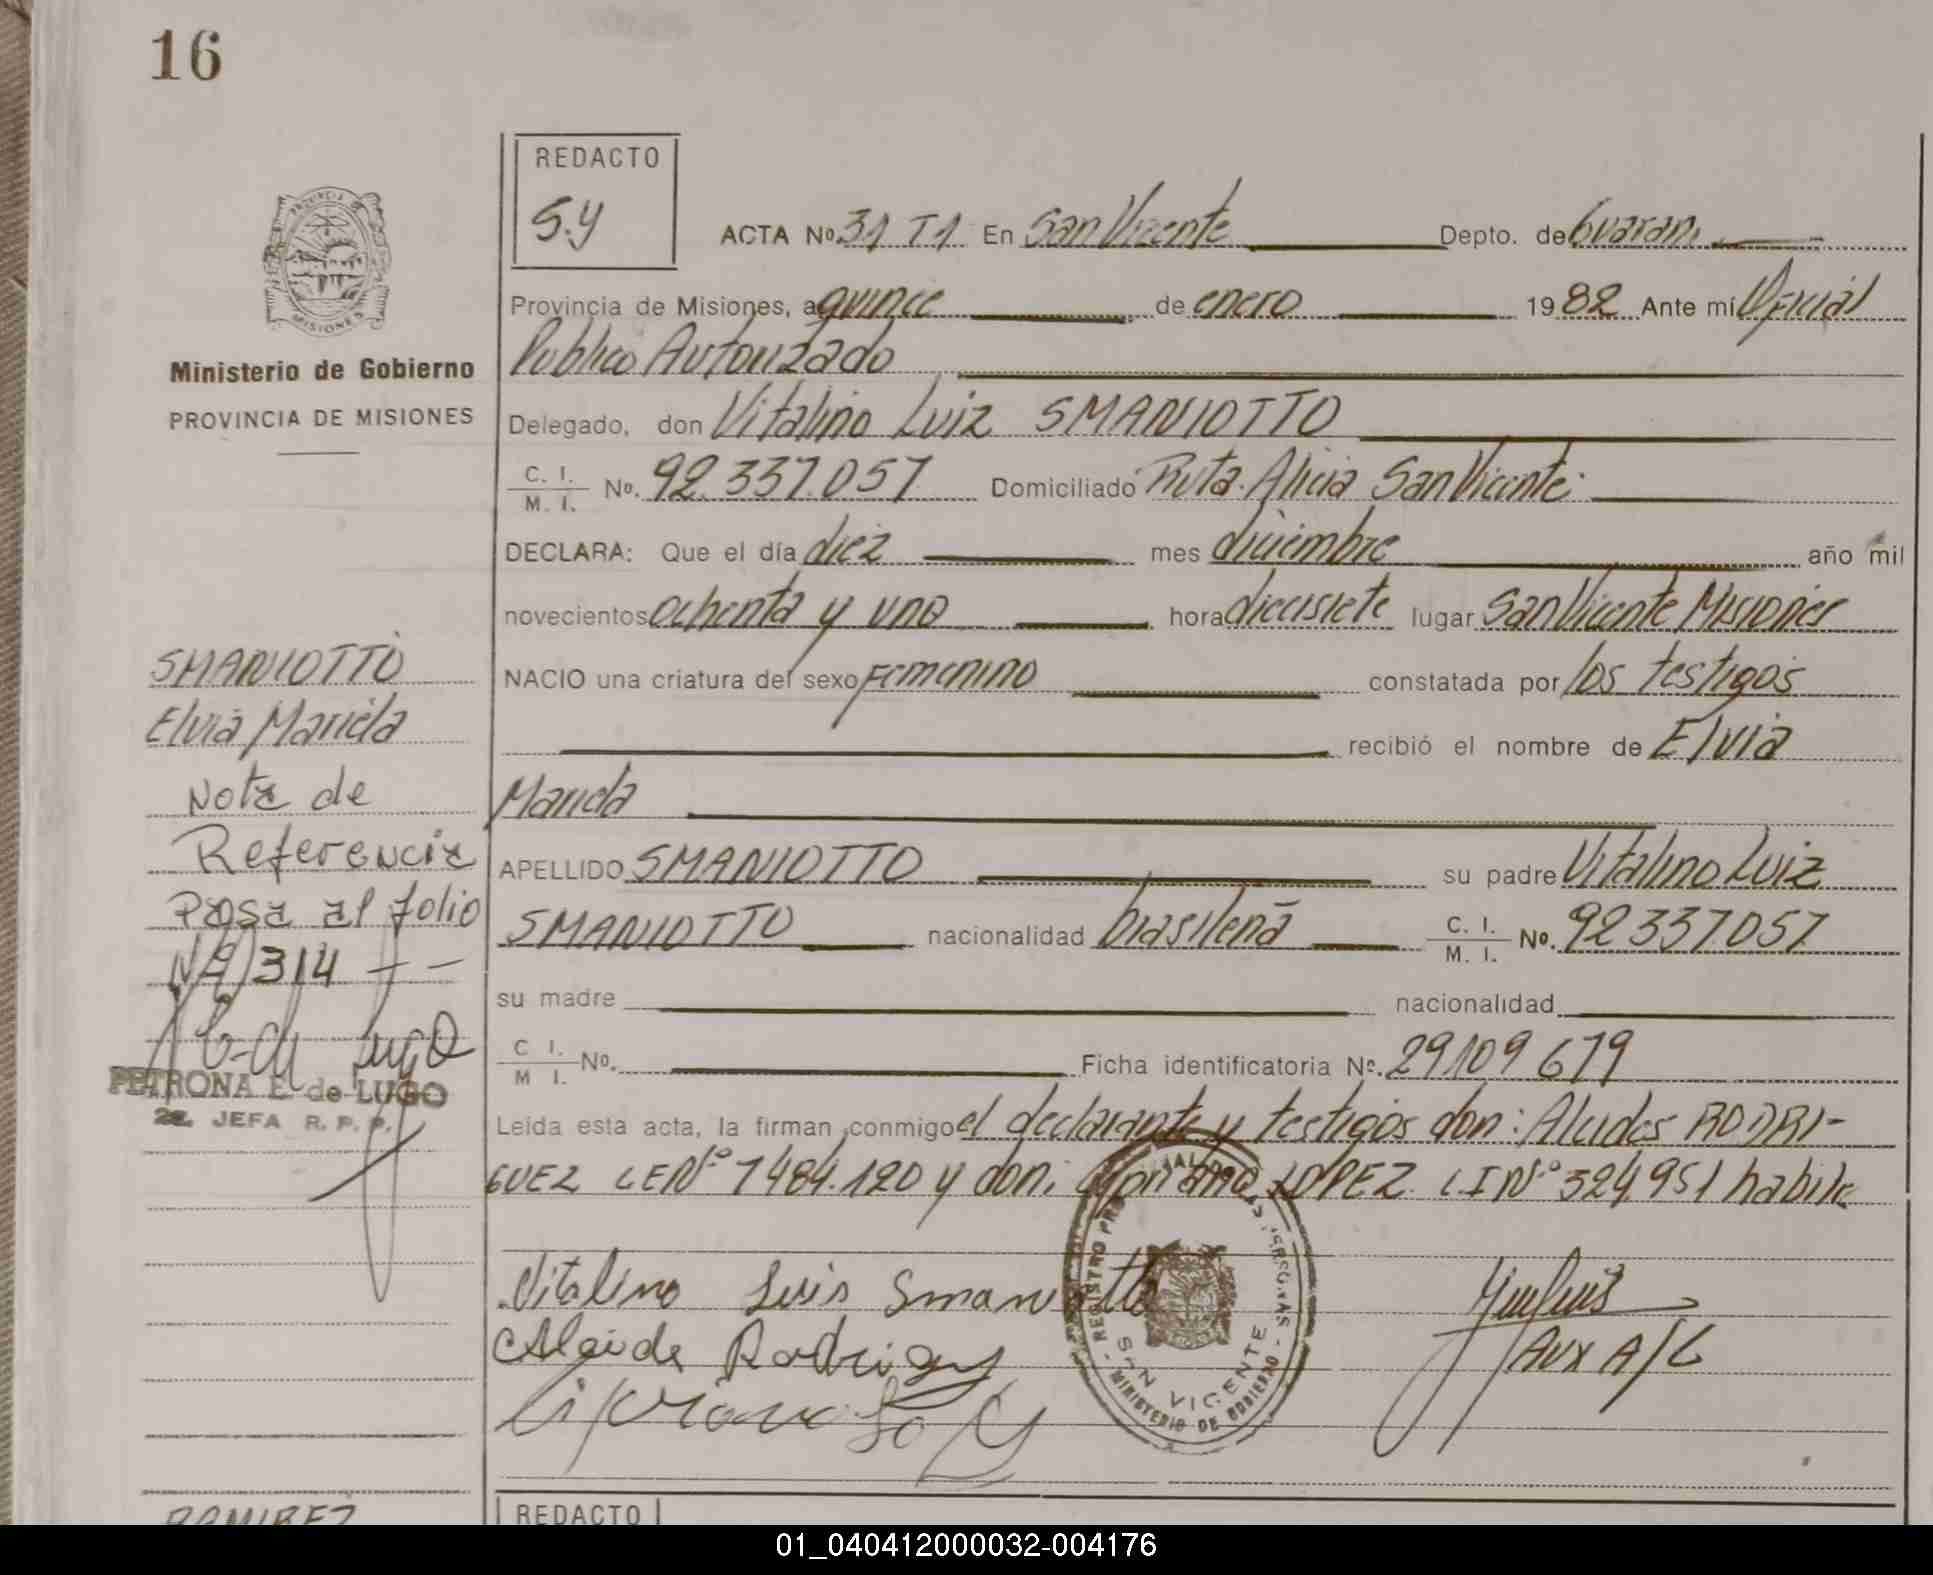 16
REDACTO
S.Y
ACTA Nº 31 T1 En San Vicente Depto. de Guarani
Provincia de Misiones, a quince de enero 1982 Ante mí Oficial
Publico Autorizado
MISIONES
Ministerio de Gobierno
PROVINCIA DE MISIONES
Delegado, don Vitalino Luiz SMANIOTTO
C. I.
M. I. Nº. 92.337.057 Domiciliado Ruta. Alicia San Vicente
DECLARA: Que el día diez mes diciembre año mil
novecientos ochenta y uno hora diecisiete lugar San Vicente Misiones
NACIO una criatura del sexo Femenino constatada por los testigos
recibió el nombre de Elvia
Mariela
APELLIDO SMANIOTTO su padre Vitalino Luiz
SMANIOTTO nacionalidad brasileña C. I.
M. I. Nº. 92337.057
su madre nacionalidad
C I.
M I. Nº. Ficha identificatoria Nº. 29109679
Leída esta acta, la firman conmigo el declarante y testigos don: Alcides RODRI-
GUEZ LE Nº 7484.120 y don: Cipriano LOPEZ. CI Nº 324.951 habile
SMANIOTTO
Elvia Mariela
Nota de
Referencia
Pasa al folio
Nº 314 - -
PETRONA E. de LUGO
2a. JEFA R. P. P.
Vitalino Luis Smaniotto
Alcide Rodriguez
Cipriano
AUX A/C
SAN VICENTE
MINISTERIO DE GOBIERNO
RAMIREZ
REDACTO
01_040412000032-004176